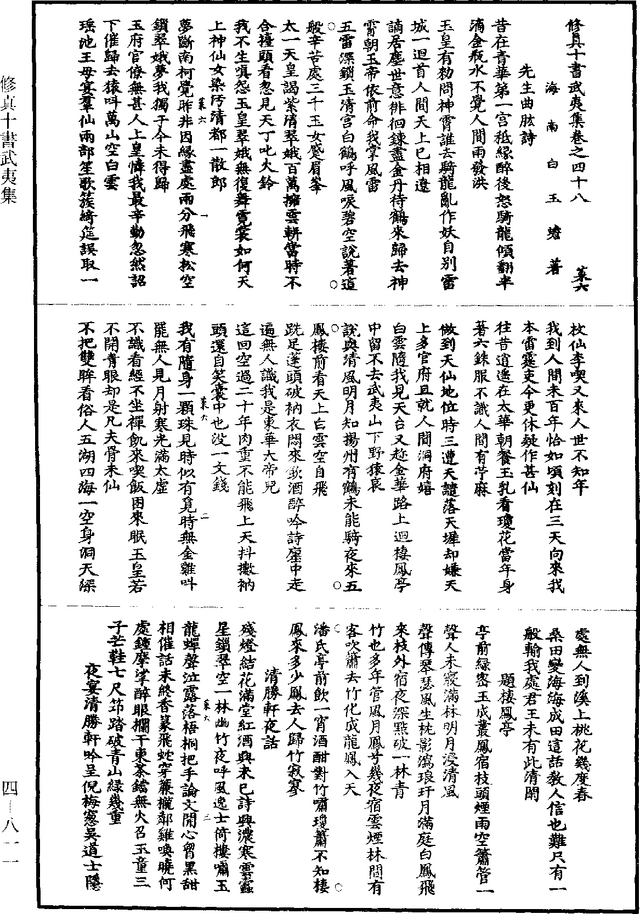 修真十書武夷集卷之四十八 菜六
海南白玉蟾著
先生曲肱詩
昔在青華第一宮秪緣醉後怒騎龍傾翻半
滴金瓶水不覺人間雨發洪
玉皇有勑問神霄誰去騎龍亂作妖自別雷
城一迴首人間天上已相遼
謫居塵世意徘徊鍊盡金丹待鶴來歸去神
霄朝玉帝依前命我掌風雷
五雷深鎖玉清宮白鶴呼風唳碧空說著這
般辛苦處三千玉女蹙眉峯
太一天皇謁紫清翠娥百萬擁雲軿當時不
合擡頭看忽見天丁叱火鈴
我不生嗔怨玉皇翠娥無復舞霓裳如何天
上神仙女染污清都一散郎
菜六 一
夢斷南柯覺昨非因緣盡處兩分飛寒松空
鎖翠娥夢我獨于今未得歸
玉府官僚無甚人上皇憐我最辛勤忽然詔
下催歸去猿叫萬山空白雲
瑤池王母宴羣仙兩部笙歌簇綺筵誤取一
枚仙李喫又來人世不知年
我到人間未百年恰如頃刻在三天向來我
本雷霆吏今更休疑作甚仙
往昔逍遙在太華朝餐玉乳看瓊花當年身
著六銖服不識人間有苧麻
做到天仙地位時三遭天譴落天墀却嫌天
上多官府且就人間洞府嬉
白雲隨我見天台又趁金華路上迴棲鳳亭
中留不去武夷山下野猿哀
說與清風明月知揚州有鶴未能騎夜來五
鳳樓前看天上白雲空自飛
跣足蓬頭破衲衣悶來飲酒醉吟詩廛中走
遍無人識我是東華大帝兒
這回空過二十年肉重不能飛上天抖擻衲
頭還自笑囊中也没一文錢
菜六 二
我有隨身一顆珠見時似有覓時無金雞叫
罷無人見月射寒光滿太虛
不識看經不坐禪飢來喫飯困來眠玉皇若
不開青眼却是凡夫骨未仙
不把雙眸看俗人五湖四海一空身洞天深
處無人到溪上桃花幾度春
桑田變海海成田這話教人信也難只有一
般輸我處君王未有此清閑
題棲鳳亭
亭前綠密玉成叢鳳宿枝頭煙雨空簫管一
聲人未寂滿林明月浸清風
聲傳琴瑟風生枕影瀉琅玕月滿庭白鳳飛
來枝外宿夜深點破一林青
竹也多年管風月鳳兮幾夜宿雲煙林間有
客吹簫去竹化成龍鳳入天
潘氏亭前飲一宵酒酣對竹嘯瓊簫不知棲
鳳來多少鳳去人歸竹寂寥
清勝軒夜話
殘燈結花滿堂紅酒興未已詩興濃寒雲靉
星鎖翠空一林幽竹夜呼風逸士倚樓嘯玉
菜六 三
龍蟬聲泣露落梧桐把手論文開心胷黑甜
相催話未終香篆飛蛇穿簾櫳鄰雞喚曉何
處鐘摩挲醉眼欄干東茶鐺無火召玉童三
子芒鞋七尺笻踏破青山綠幾重
夜宴清勝軒吟呈倪梅窻吳道士隱
修真十書武夷集
四—八一一